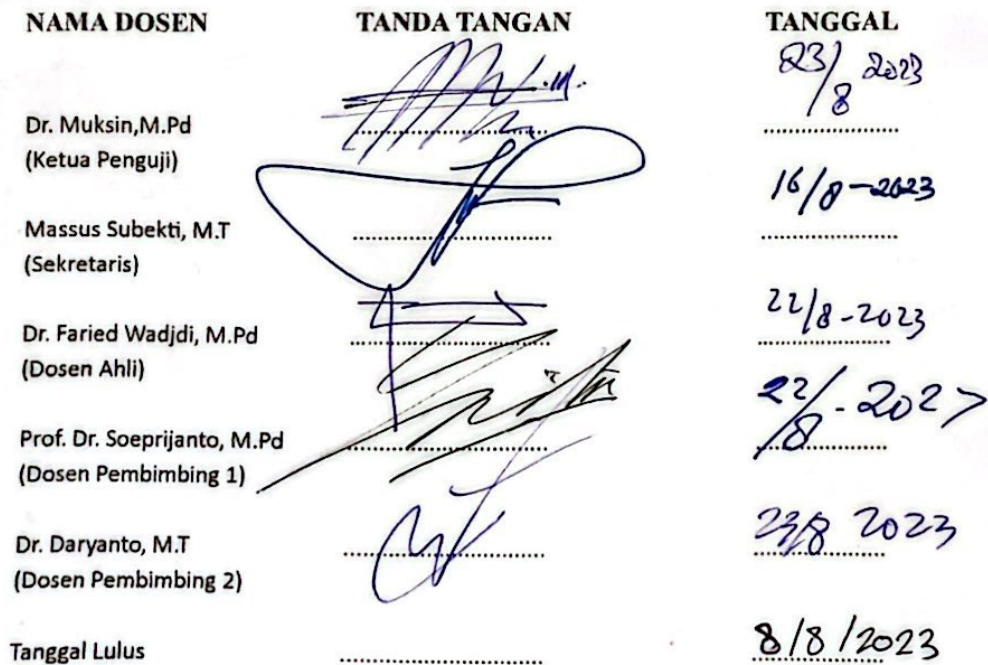 NAMA DOSEN TANDA TANGAN TANGGAL
23/8 2023
Dr. Muksin,M.Pd ....................
(Ketua Penguji)
16/8-2023
Massus Subekti, M.T ....................
(Sekretaris)
22/8-2023
Dr. Faried Wadjdi, M.Pd ....................
(Dosen Ahli)
22/8-2023
Prof. Dr. Soeprijanto, M.Pd ....................
(Dosen Pembimbing 1)
23/8 2023
Dr. Daryanto, M.T ....................
(Dosen Pembimbing 2)
Tanggal Lulus .................... 8/8/2023